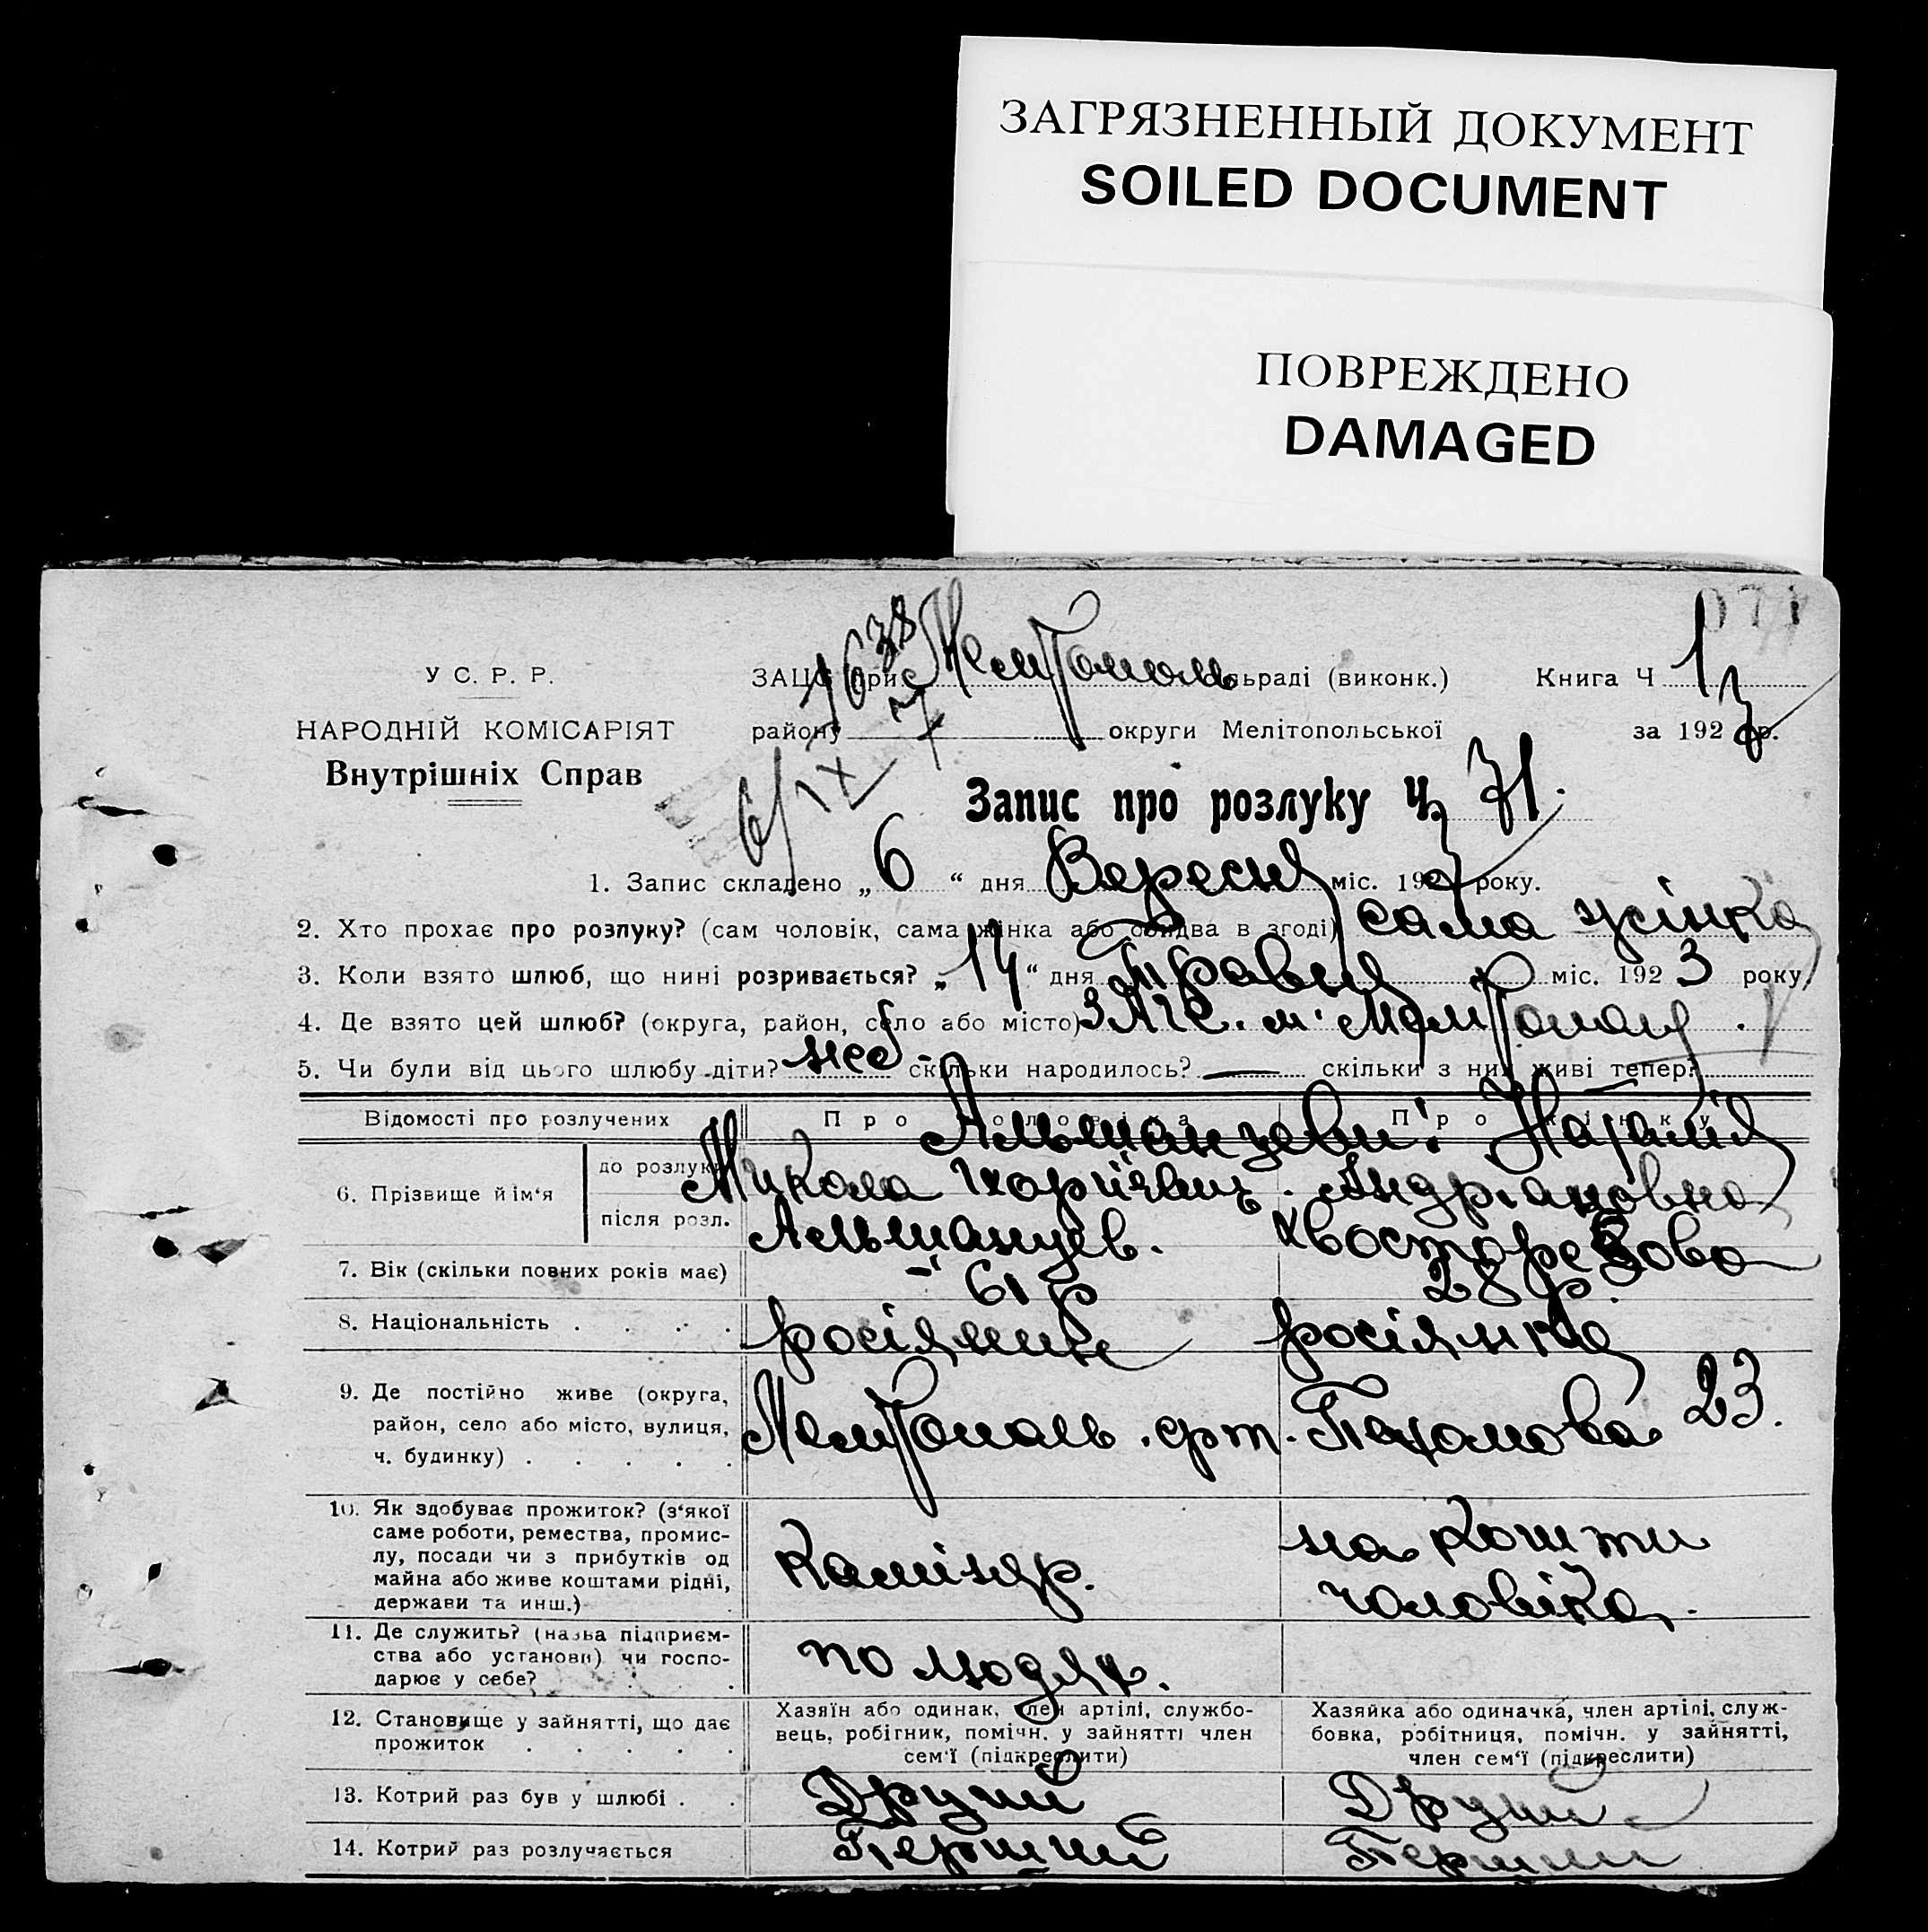 ЗАГРЯЗНЕННЫЙ ДОКУМЕНТ
SOILED DOCUMENT
ПОВРЕЖДЕНО
DAMAGED
У С. Р. Р.
НАРОДНІЙ КОМІСАРІЯТ
Внутрішніх Справ
1638
6/IX 7
ЗАЦС при Мелітополь ільраді (виконк.) Книга Ч 1
району округи Мелітопольської за 1927 р.
Запис про розлуку Ч. 71.
1. Запис складено „ 6 “ дня Вересня міс. 1927 року.
2. Хто прохає про розлуку? (сам чоловік, сама жінка або обидва в згоді) сама жінка
3. Коли взято шлюб, що нині розривається? „ 14 “ дня Травня міс. 1923 року
4. Де взято цей шлюб? (округа, район, село або місто) ЗАГС. м. Мелітополь.
5. Чи були від цього шлюбу діти? скільки народилось? — скільки з них живі тепер? —
Відомості про розлучених Про чоловіка Про жінку
6. Прізвище й ім‘я
до розлуки Наталія
Микола Андріановна
після розл. Хвосторезова
7. Вік (скільки повних років має) 61 р 28 р.
8. Національність . . . . росіянин росіянка
9. Де постійно живе (округа, район, село або місто, вулиця, ч. будинку) . . . . . Мелітополь. Пахомова 23.
10. Як здобуває прожиток? (з‘якої
саме роботи, ремества, промис-
лу, посади чи з прибутків од
майна або живе коштами рідні,
держави та инш.)
Каміняр.
на кошти
чоловіка.
11. Де служить? (назва підприєм-
ства або установи) чи госпо-
дарює у себе?
по людях.
12. Становище у зайнятті, що дає
прожиток . . . . .
Хазяїн або одинак, член артілі, службо-
вець, робітник, помічн. у зайнятті член
сем‘ї (підкреслити)
Хазяйка або одиначка, член артілі, служ-
бовка, робітниця, помічн. у зайнятті,
член сем‘ї (підкреслити)
13. Котрий раз був у шлюбі . . Другий Другий
14. Котрий раз розлучається Перший Перший